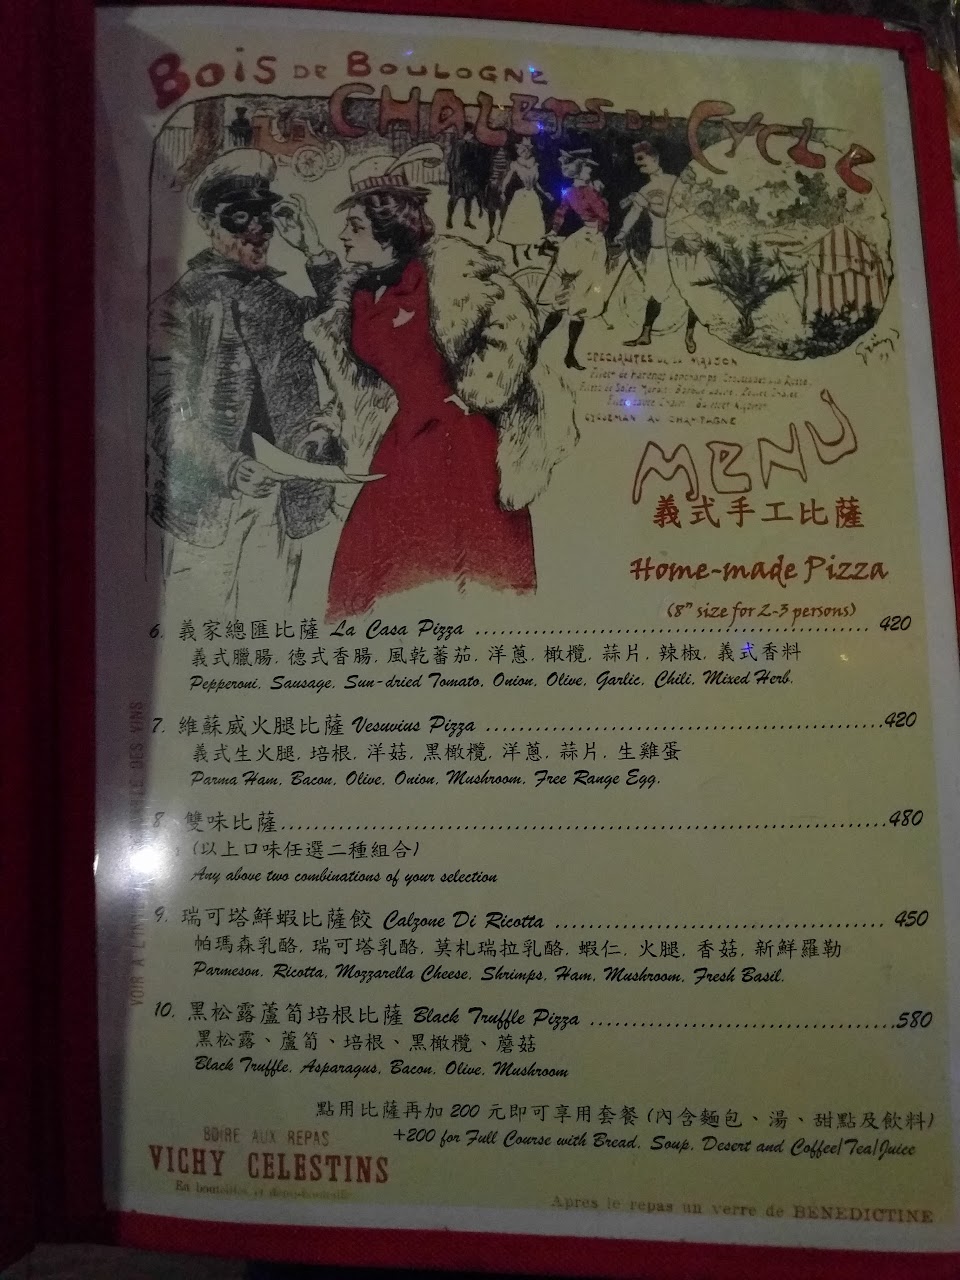 BOIS DE BOULOGNE
LES CHALETS DU CYCLE
SPECIALITES DE LA MAISON
CYCLEMAN AU CHAMPAGNE
MENU
義式手工比薩
Home-made Pizza
(8" size for 2-3 persons)
6. 義家總匯比薩 La Casa Pizza ................................................ 420
義式臘腸, 德式香腸, 風乾蕃茄, 洋蔥, 橄欖, 蒜片, 辣椒, 義式香料
Pepperoni, Sausage, Sun-dried Tomato, Onion, Olive, Garlic, Chili, Mixed Herb.
7. 維蘇威火腿比薩 Vesuvius Pizza ................................................420
義式生火腿, 培根, 洋菇, 黑橄欖, 洋蔥, 蒜片, 生雞蛋
Parma Ham, Bacon, Olive, Onion, Mushroom, Free Range Egg.
8. 雙味比薩................................................480
(以上口味任選二種組合)
Any above two combinations of your selection
9. 瑞可塔鮮蝦比薩餃 Calzone Di Ricotta ........................................ 450
帕瑪森乳酪, 瑞可塔乳酪, 莫札瑞拉乳酪, 蝦仁, 火腿, 香菇, 新鮮羅勒
Parmeson, Ricotta, Mozzarella Cheese, Shrimps, Ham, Mushroom, Fresh Basil.
10. 黑松露蘆筍培根比薩 Black Truffle Pizza .....................................580
黑松露、蘆筍、培根、黑橄欖、蘑菇
Black Truffle, Asparagus, Bacon, Olive, Mushroom
點用比薩再加 200 元即可享用套餐 (內含麵包、湯、甜點及飲料)
+200 for Full Course with Bread, Soup, Desert and Coffee/Tea/Juice
BOIRE AUX REPAS
VICHY CELESTINS
Apres le repas un verre de BENEDICTINE